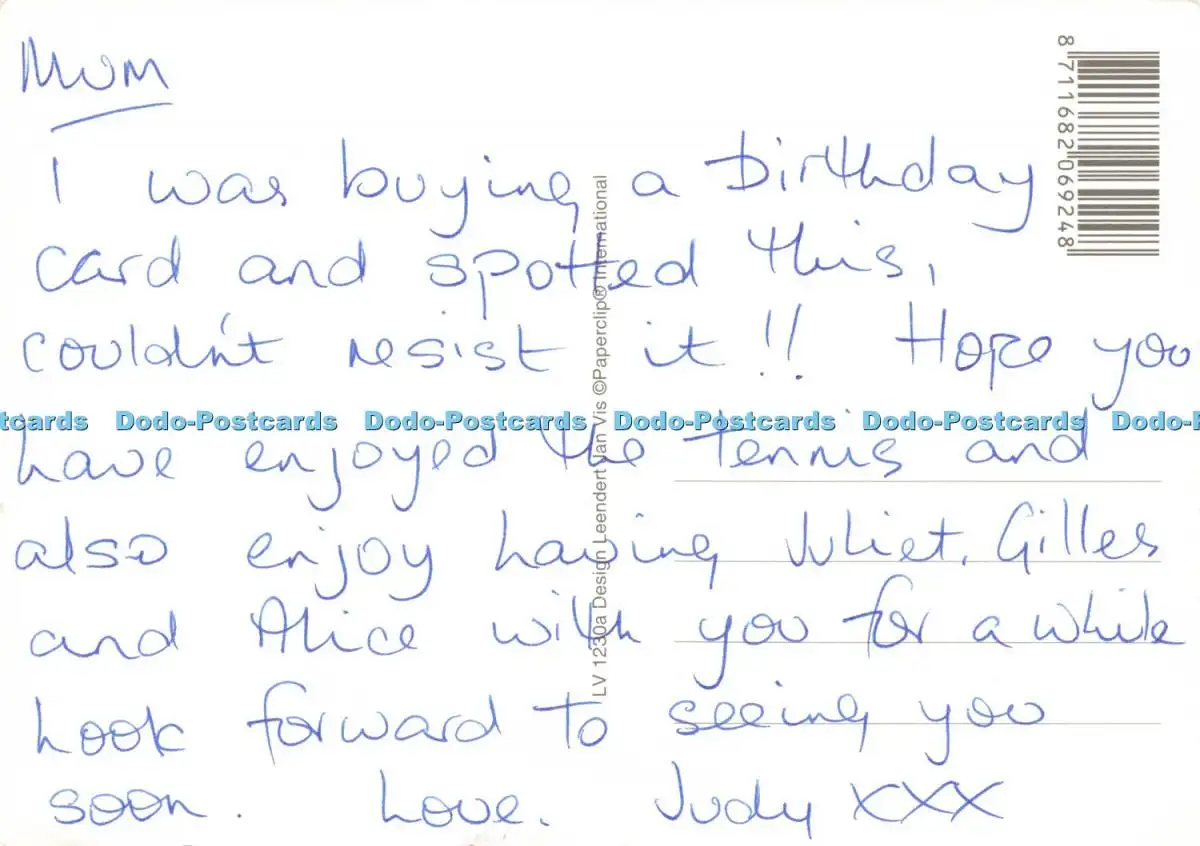 Mum
I was buying a birthday
card and spotted this,
couldn't resist it!! Hope you
have enjoyed the tennis and
also enjoy having Juliet, Gilles
and Alice with you for a while
Look forward to seeing you
soon. Love. Judy XXX
LV 1230a Design Leendert Jan Vis ©Paperclip® International
8 711682 069248
tcards Dodo-Postcards Dodo-Postcards Dodo-Postcards Dodo-Postcards Dodo-P